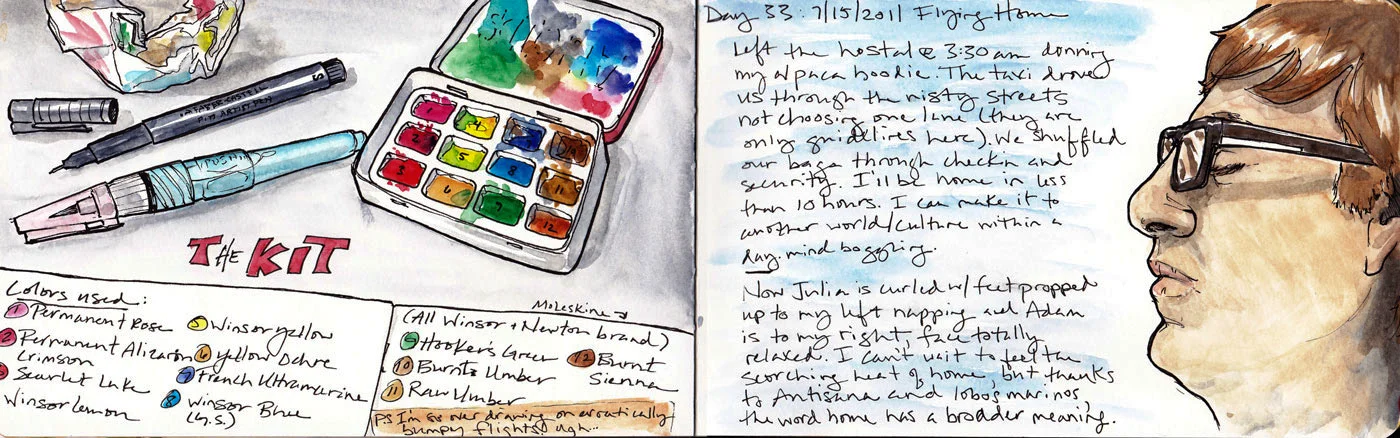 FABER CASTELL
PITT ARTIST PEN
S
THE KIT
Moleskine
Colors used:
1 Permanent Rose
2 Permanent Alizarin
Crimson
3 Scarlet Lake
Winsor Lemon
5 Winsor Yellow
6 Yellow Ochre
7 French Ultramarine
8 Winsor Blue
(G.S.)
(All Winsor + Newton brand)
9 Hooker's Green
10 Burnt Umber
11 Raw Umber
12 Burnt
Sienna
P.S I'm so over drawing on erratically
bumpy flights! ugh...
Day 33: 7/15/2011 Flying Home
Left the hostal @ 3:30 am donning
my alpaca hoodie. The taxi drove
us through the misty streets
not choosing one lane (they are
only guidelines here). We shuffled
our bags through checkin and
security. I'll be home in less
than 10 hours. I can make it to
another world/culture within a
day. mind boggling.
Now Julia is curled w/ feet propped
up to my left napping and Adam
is to my right, face totally
relaxed. I can't wait to feel the
scorching heat of home, but thanks
to Antisana and lobos marinos,
the word home has a broader meaning.